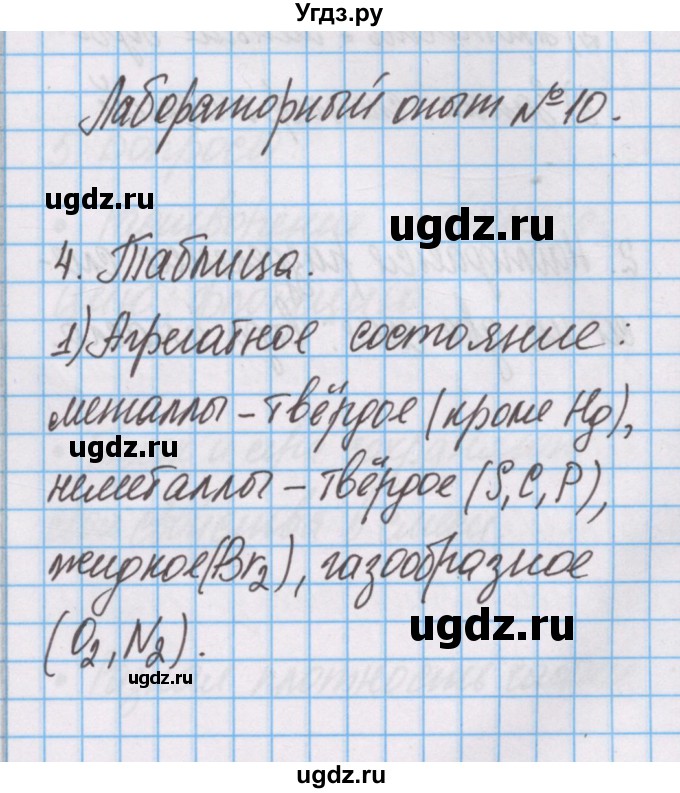 Угдз.ру
Лабораторный опыт №10.
ugdz.ru
ugdz.ru
4. Таблица.
1) Агрегатное состояние:
металлы – твёрдое (кроме Hg),
ugdz.ru
неметаллы – твёрдое (S, C, P),
жидкое (Br₂), газообразное
ugdz.ru
(O₂, N₂).
ugdz.ru
ugdz.ru